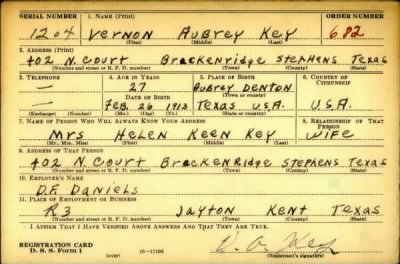 SERIAL NUMBER 1. NAME (Print) ORDER NUMBER
1204 Vernon Aubrey Key 682
(First) (Middle) (Last)
2. ADDRESS (Print)
402 N. Court Breckenridge Stephens Texas
(Number and street or R. F. D. number) (Town) (County) (State)
3. TELEPHONE 4. AGE IN YEARS 5. PLACE OF BIRTH 6. COUNTRY OF CITIZENSHIP
— 27 Aubrey Denton
DATE OF BIRTH (Town) (County)
— Feb. 26 1913 Texas U.S.A. U.S.A.
(Exchange) (Number) (Mo.) (Day) (Yr.) (State or country)
7. NAME OF PERSON WHO WILL ALWAYS KNOW YOUR ADDRESS 8. RELATIONSHIP OF THAT PERSON
Mrs Helen Keen Key Wife
(Mr., Mrs., Miss) (First) (Middle) (Last)
9. ADDRESS OF THAT PERSON
402 N. Court Breckenridge Stephens Texas
(Number and street or R. F. D. number) (Town) (County) (State)
10. EMPLOYER'S NAME
D.F. Daniels
11. PLACE OF EMPLOYMENT OR BUSINESS
R3 Jayton Kent Texas
(Number and street or R. F. D. number) (Town) (County) (State)
I AFFIRM THAT I HAVE VERIFIED ABOVE ANSWERS AND THAT THEY ARE TRUE.
REGISTRATION CARD
D. S. S. Form 1 (over) 16—17105 (Registrant's signature)